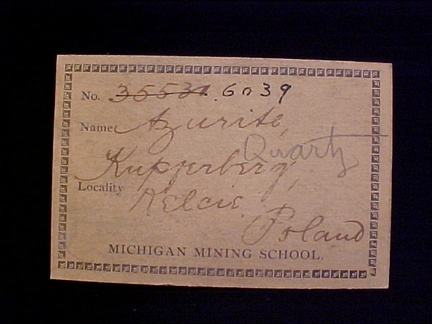 No. 35537. 6039
Name Azurite,
Quartz
Kupferberg,
Locality Kelcie
Poland
MICHIGAN MINING SCHOOL.